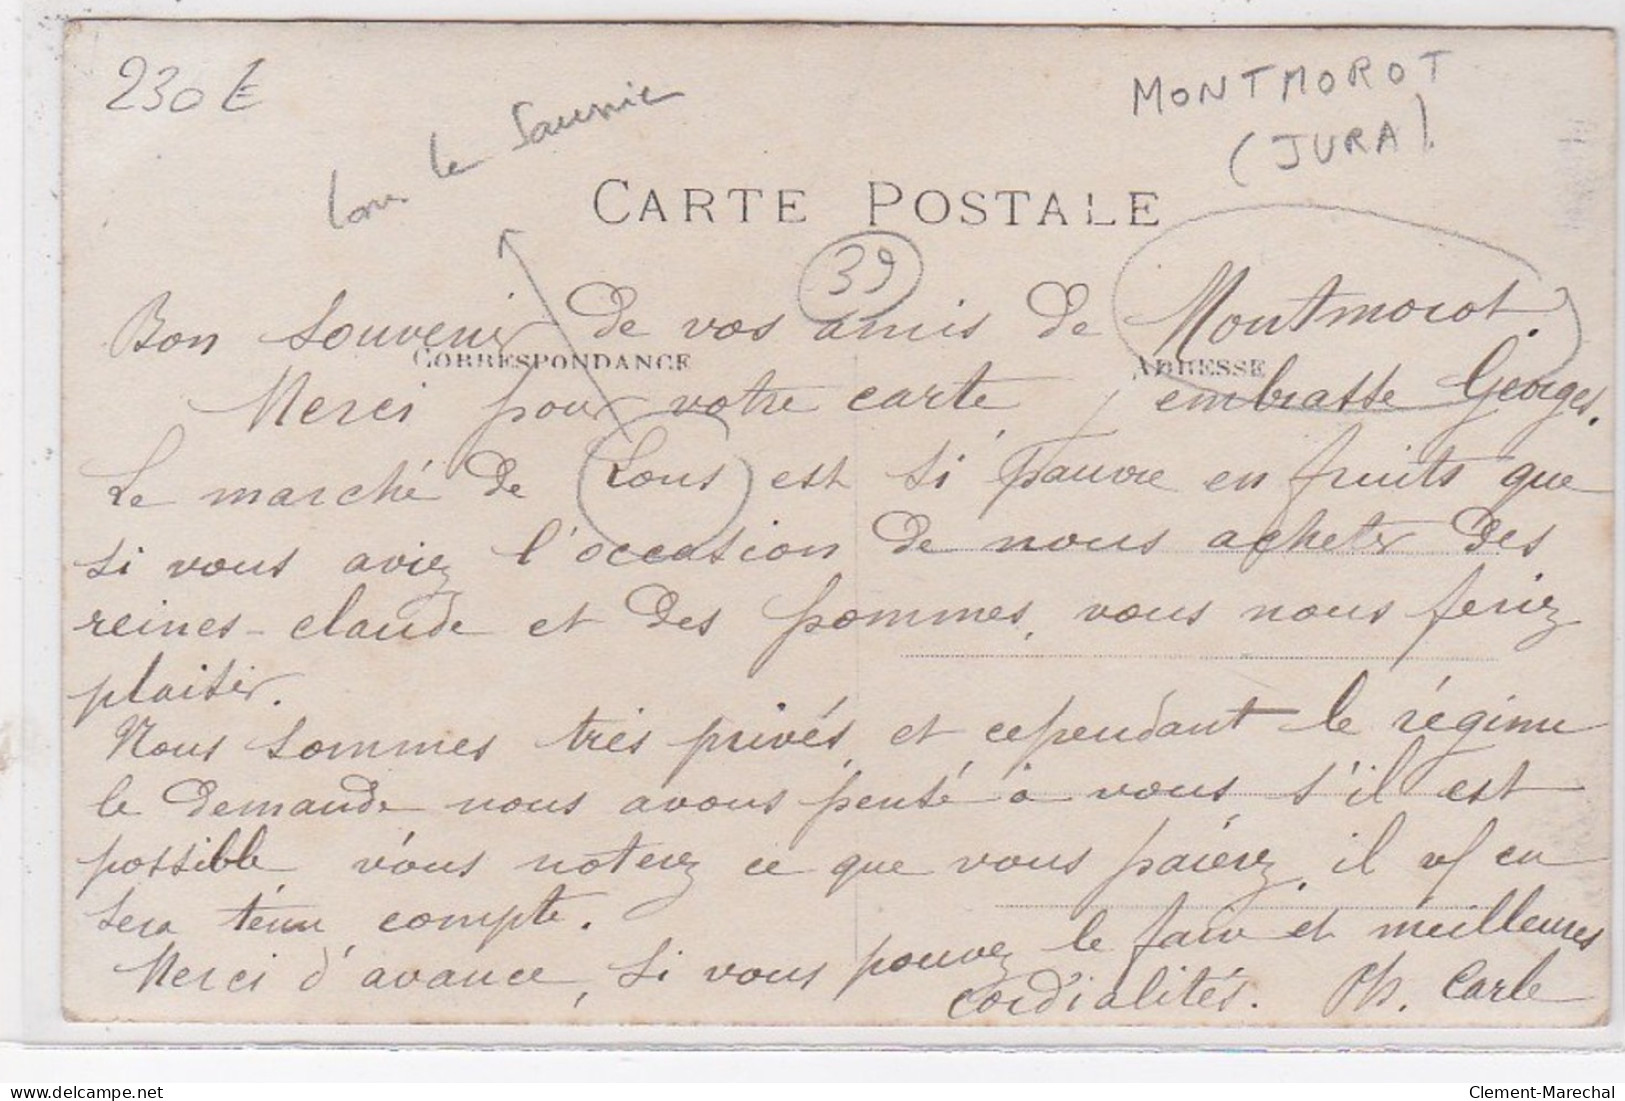 230 E
Lons le Saunie
MONTMOROT
(JURA).
CARTE POSTALE
39
Bon souvenir de vos amis de Montmorot.
CORRESPONDANCE
ADRESSE
Merci pour votre carte, embrasse Georges.
Le marché de Lons est si pauvre en fruits que
si vous aviez l'occasion de nous acheter des
reines-claude et des pommes, vous nous feriez
plaisir.
Nous sommes très privés, et cependant le régime
le demande nous avons pensé à vous s'il est
possible vous noterez ce que vous paierez, il en
sera tenu compte.
Merci d'avance, si vous pouvez le faire et meilleures
cordialités. Ph. Carle
Clement-Marechal